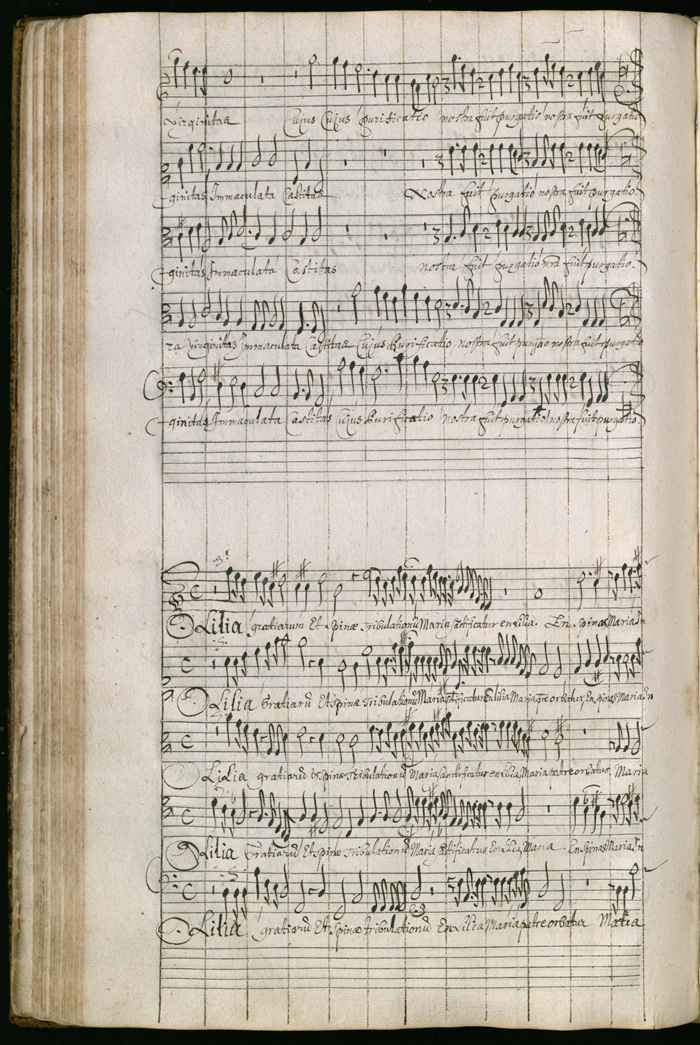 Virginitas Cujus Cujus Purificatio nostra fuit purgatio nostra fuit purgatio
ginitas Immaculata Castitas Nostra fuit purgatio nostra fuit purgatio.
ginitas Immaculata Castitas nostra fuit purgatio nr̃a fuit purgatio.
ra Virginitas Immaculata Castitas Cujus Purificatio nostra fuit purgatio nostra fuit purgatio
ginitas Immaculata Castitas Cujus Purificatio nostra fuit purgatio nostra fuit purgatio
O Lilia gratiarum Et Spinæ tribulationũ Maria en Lilia. En Spinas Maria En
O Lilia Gratiarũ Et Spinæ tribulationũ Maria En Lilia Maria patre orbatur, En Spinas Maria En
O Lilia gratiarũ Et Spinæ tribulationũ Maria Sanctificatur en Lilia Maria patre orbatur, Maria
O Lilia Gratiarũ Et Spinæ Tribulationũ Maria En Lilia Maria En Spinas Maria En
O Lilia gratiarũ Et Spinæ tribulationũ En Lilia Maria patre orbatur Maria